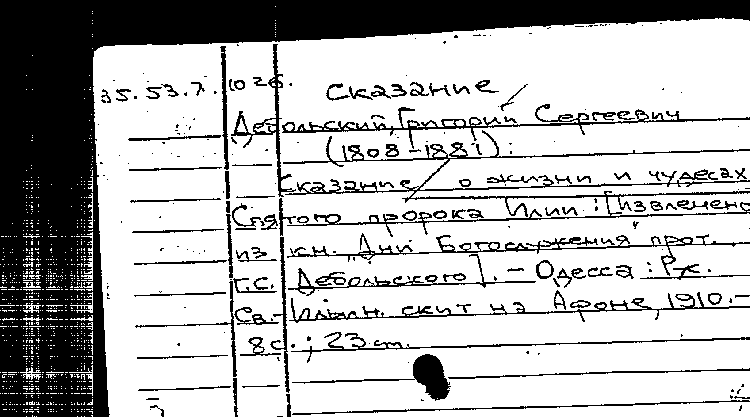 35.53.7.1026. Сказание
Дебольский, Григорий Сергеевич
(1808-1881):
Сказание о жизни и чудесах
Святого пророка Илии: [Извлечено
из кн. „Дни Богослужения" прот.
Г.С. Дебольского]. - Одесса: Рус.
Св.-Ильин. скит на Афоне, 1910.-
8с.; 23 cm.